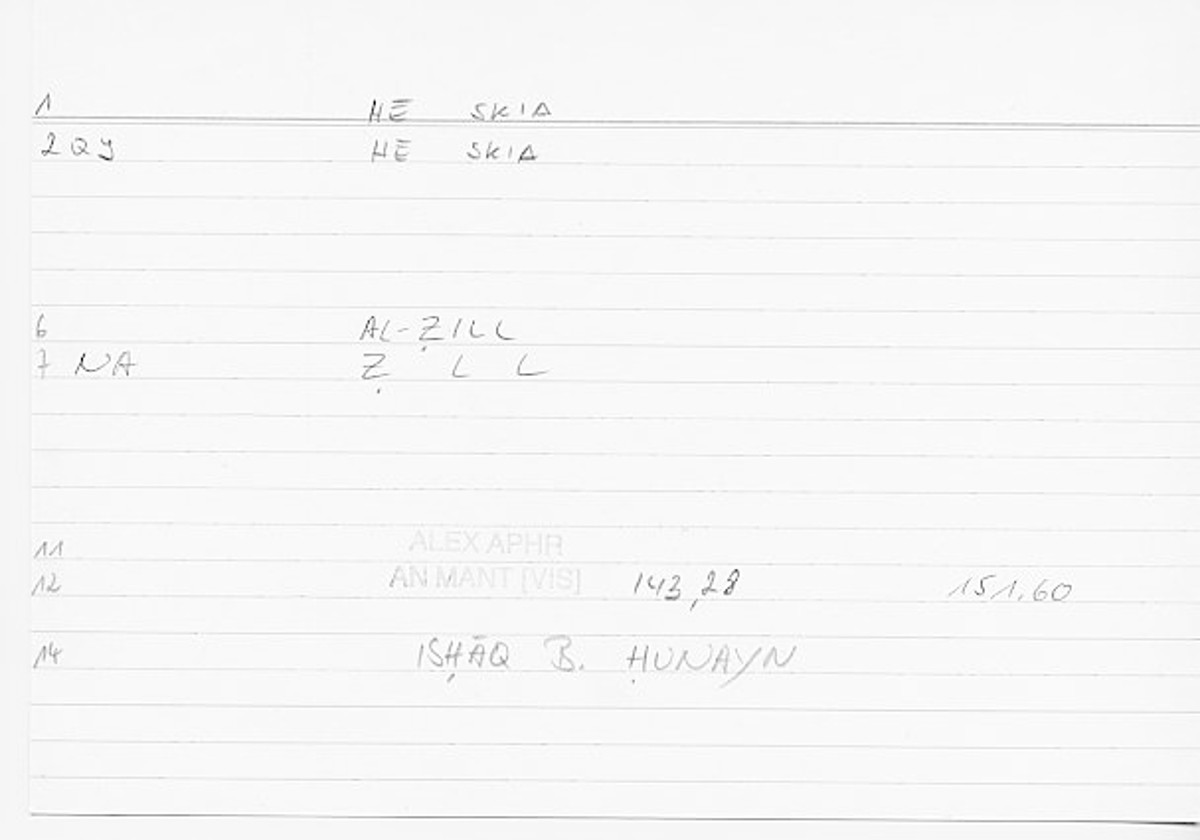 1 HĒ SKIA
2 QY HĒ SKIA
6 AL-ẒILL
7 NA Ẓ L L
11 ALEX APHR
12 AN MANT [VIS] 143,28 151.60
14 ISḤĀQ B. ḤUNAYN